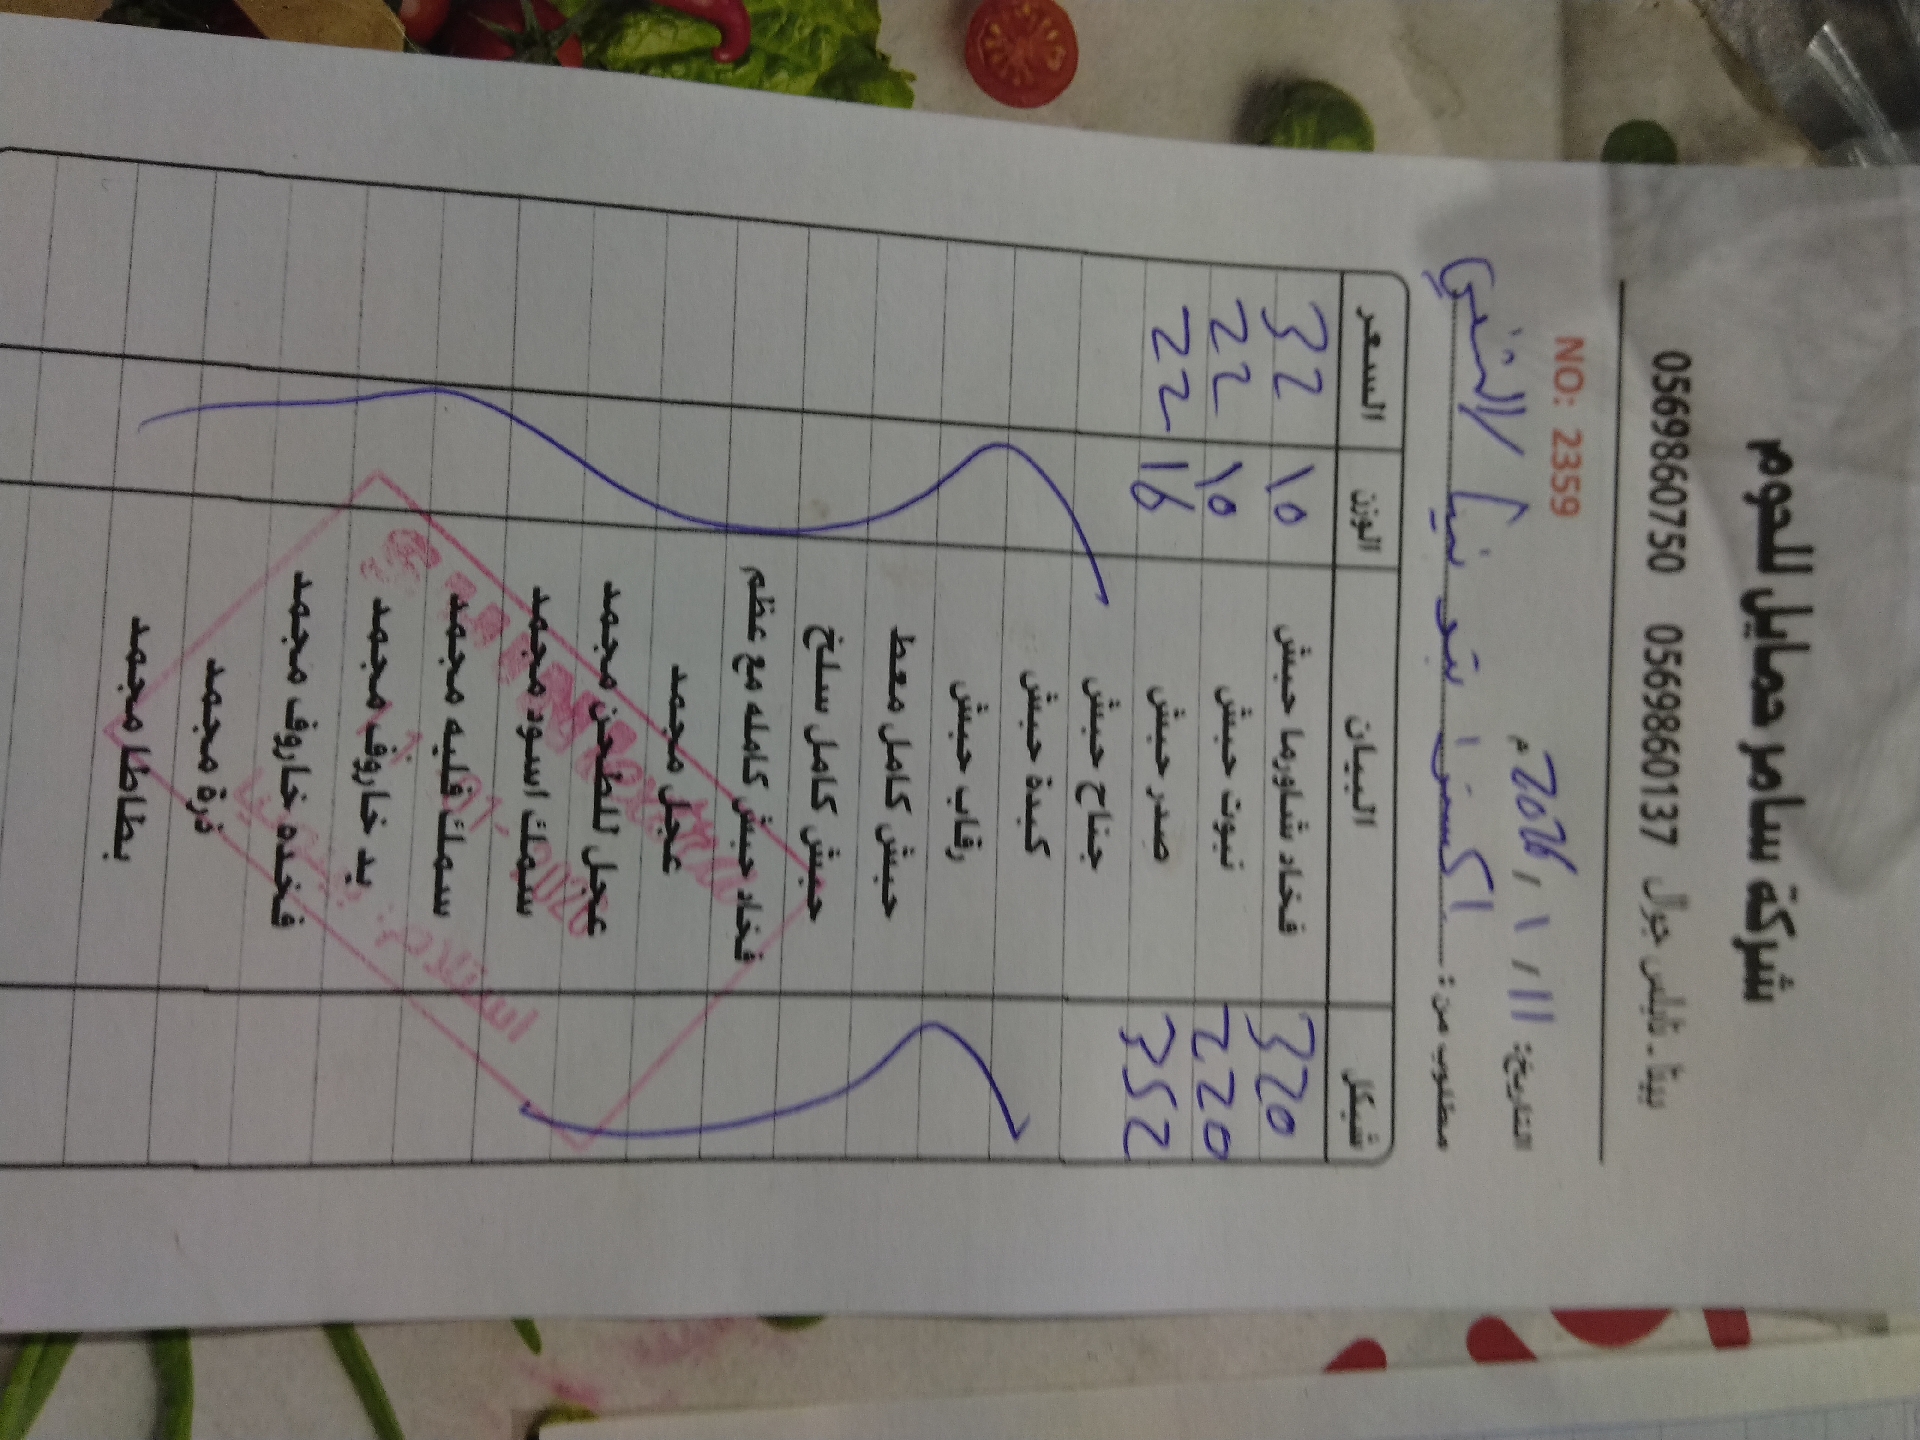 شركة سامر حمايل للحوم
بيتا - نابلس جوال 0569860137 0569860750
NO: 2359
التاريخ: 11 / 1 / 2026 م
مطلوب من:
شيكل البيان الوزن السعر
320 فخاد شاورما حبش 10 32
220 نبوت حبش 10 22
352 صدر حبش 16 22
جناح حبش
كبدة حبش
رقاب حبش
حبش كامل معط
حبش كامل سلخ
فخاد حبش كامله مع عظم
عجل مجمد
عجل للطحن مجمد
سمك اسود مجمد
سمك فليه مجمد
يد خاروف مجمد
فخده خاروف مجمد
ذرة مجمد
بطاطا مجمد
استلام: